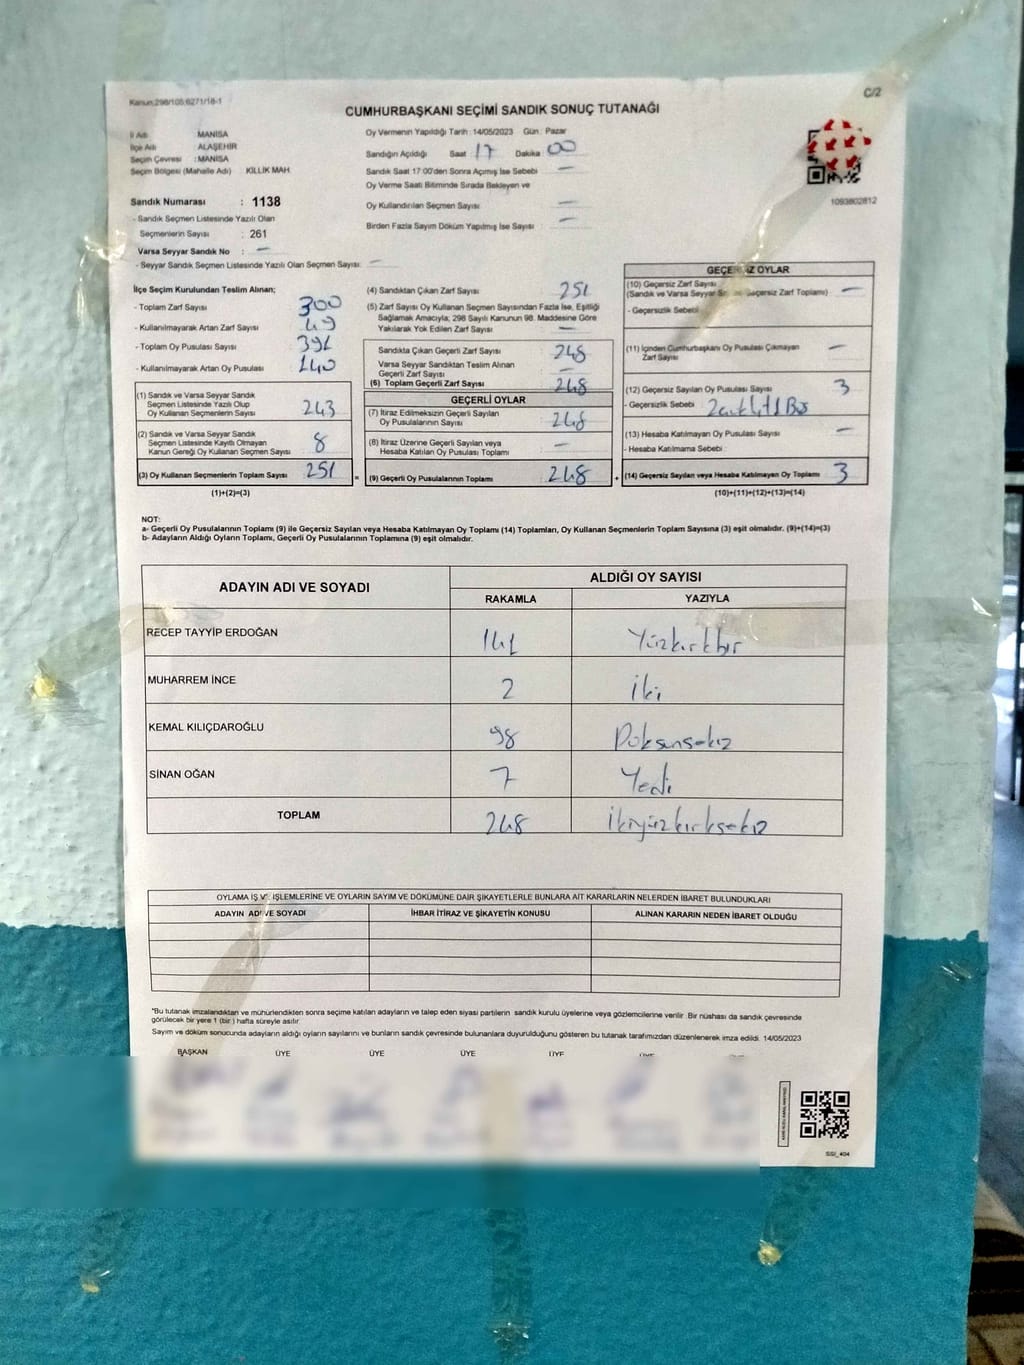 Kanun:298/105;6271/18-1
C/2
CUMHURBAŞKANI SEÇİMİ SANDIK SONUÇ TUTANAĞI
İl Adı MANİSA
İlçe Adı ALAŞEHİR
Seçim Çevresi : MANİSA
Seçim Bölgesi (Mahalle Adı) KILLIK MAH.
Sandık Numarası : 1138
- Sandık Seçmen Listesinde Yazılı Olan
Seçmenlerin Sayısı : 261
Varsa Seyyar Sandık No : –
- Seyyar Sandık Seçmen Listesinde Yazılı Olan Seçmen Sayısı: –
Oy Vermenin Yapıldığı Tarih : 14/05/2023 Gün : Pazar
Sandığın Açıldığı Saat : 17 Dakika : 00
Sandık Saat 17:00'den Sonra Açılmış İse Sebebi : –
Oy Verme Saati Bitiminde Sırada Bekleyen ve
Oy Kullandırılan Seçmen Sayısı : –
Birden Fazla Sayım Döküm Yapılmış İse Sayısı : –
1093802812
İlçe Seçim Kurulundan Teslim Alınan;
- Toplam Zarf Sayısı : 300
- Kullanılmayarak Artan Zarf Sayısı : 49
- Toplam Oy Pusulası Sayısı : 391
- Kullanılmayarak Artan Oy Pusulası : 140
(1) Sandık ve Varsa Seyyar Sandık
Seçmen Listesinde Yazılı Olup
Oy Kullanan Seçmenlerin Sayısı : 243
(2) Sandık ve Varsa Seyyar Sandık
Seçmen Listesinde Kayıtlı Olmayan
Kanun Gereği Oy Kullanan Seçmen Sayısı : 8
(3) Oy Kullanan Seçmenlerin Toplam Sayısı : 251
(1)+(2)=(3)
(4) Sandıktan Çıkan Zarf Sayısı : 251
(5) Zarf Sayısı Oy Kullanan Seçmen Sayısından Fazla İse, Eşitliği
Sağlamak Amacıyla; 298 Sayılı Kanunun 98. Maddesine Göre
Yakılarak Yok Edilen Zarf Sayısı : –
Sandıkta Çıkan Geçerli Zarf Sayısı : 248
Varsa Seyyar Sandıktan Teslim Alınan
Geçerli Zarf Sayısı : –
(6) Toplam Geçerli Zarf Sayısı : 248
GEÇERLİ OYLAR
(7) İtiraz Edilmeksizin Geçerli Sayılan
Oy Pusulalarının Sayısı : 248
(8) İtiraz Üzerine Geçerli Sayılan veya
Hesaba Katılan Oy Pusulası Toplamı : –
= (9) Geçerli Oy Pusulalarının Toplamı : 248 +
GEÇERSİZ OYLAR
(10) Geçersiz Zarf Sayısı : –
(Sandık ve Varsa Seyyar Geçersiz Zarf Toplamı)
- Geçersizlik Sebebi
(11) İçinden Cumhurbaşkanı Oy Pusulası Çıkmayan
Zarf Sayısı : –
(12) Geçersiz Sayılan Oy Pusulası Sayısı : 3
- Geçersizlik Sebebi :
(13) Hesaba Katılmayan Oy Pusulası Sayısı : –
- Hesaba Katılmama Sebebi :
(14) Geçersiz Sayılan veya Hesaba Katılmayan Oy Toplamı : 3
(10)+(11)+(12)+(13)=(14)
NOT:
a- Geçerli Oy Pusulalarının Toplamı (9) ile Geçersiz Sayılan veya Hesaba Katılmayan Oy Toplamı (14) Toplamları, Oy Kullanan Seçmenlerin Toplam Sayısına (3) eşit olmalıdır. (9)+(14)=(3)
b- Adayların Aldığı Oyların Toplamı, Geçerli Oy Pusulalarının Toplamına (9) eşit olmalıdır.
ADAYIN ADI VE SOYADI ALDIĞI OY SAYISI
RAKAMLA YAZIYLA
RECEP TAYYİP ERDOĞAN 141 Yüzkırkbir
MUHARREM İNCE 2 İki
KEMAL KILIÇDAROĞLU 98 Doksansekiz
SİNAN OĞAN 7 Yedi
TOPLAM 248 İkiyüzkırksekiz
OYLAMA İŞ VE İŞLEMLERİNE VE OYLARIN SAYIM VE DÖKÜMÜNE DAİR ŞİKAYETLERLE BUNLARA AİT KARARLARIN NELERDEN İBARET BULUNDUKLARI
ADAYIN ADI VE SOYADI İHBAR İTİRAZ VE ŞİKAYETİN KONUSU ALINAN KARARIN NEDEN İBARET OLDUĞU
"Bu tutanak imzalandıktan ve mühürlendikten sonra seçime katılan adayların ve talep eden siyasi partilerin sandık kurulu üyelerine veya gözlemcilerine verilir. Bir nüshası da sandık çevresinde
görülecek bir yere 1 (bir) hafta süreyle asılır.
Sayım ve döküm sonucunda adayların aldığı oyların sayılarını ve bunların sandık çevresinde bulunanlara duyurulduğunu gösteren bu tutanak tarafımızdan düzenlenerek imza edildi. 14/05/2023
BAŞKAN ÜYE ÜYE ÜYE ÜYE ÜYE ÜYE
SSI_404